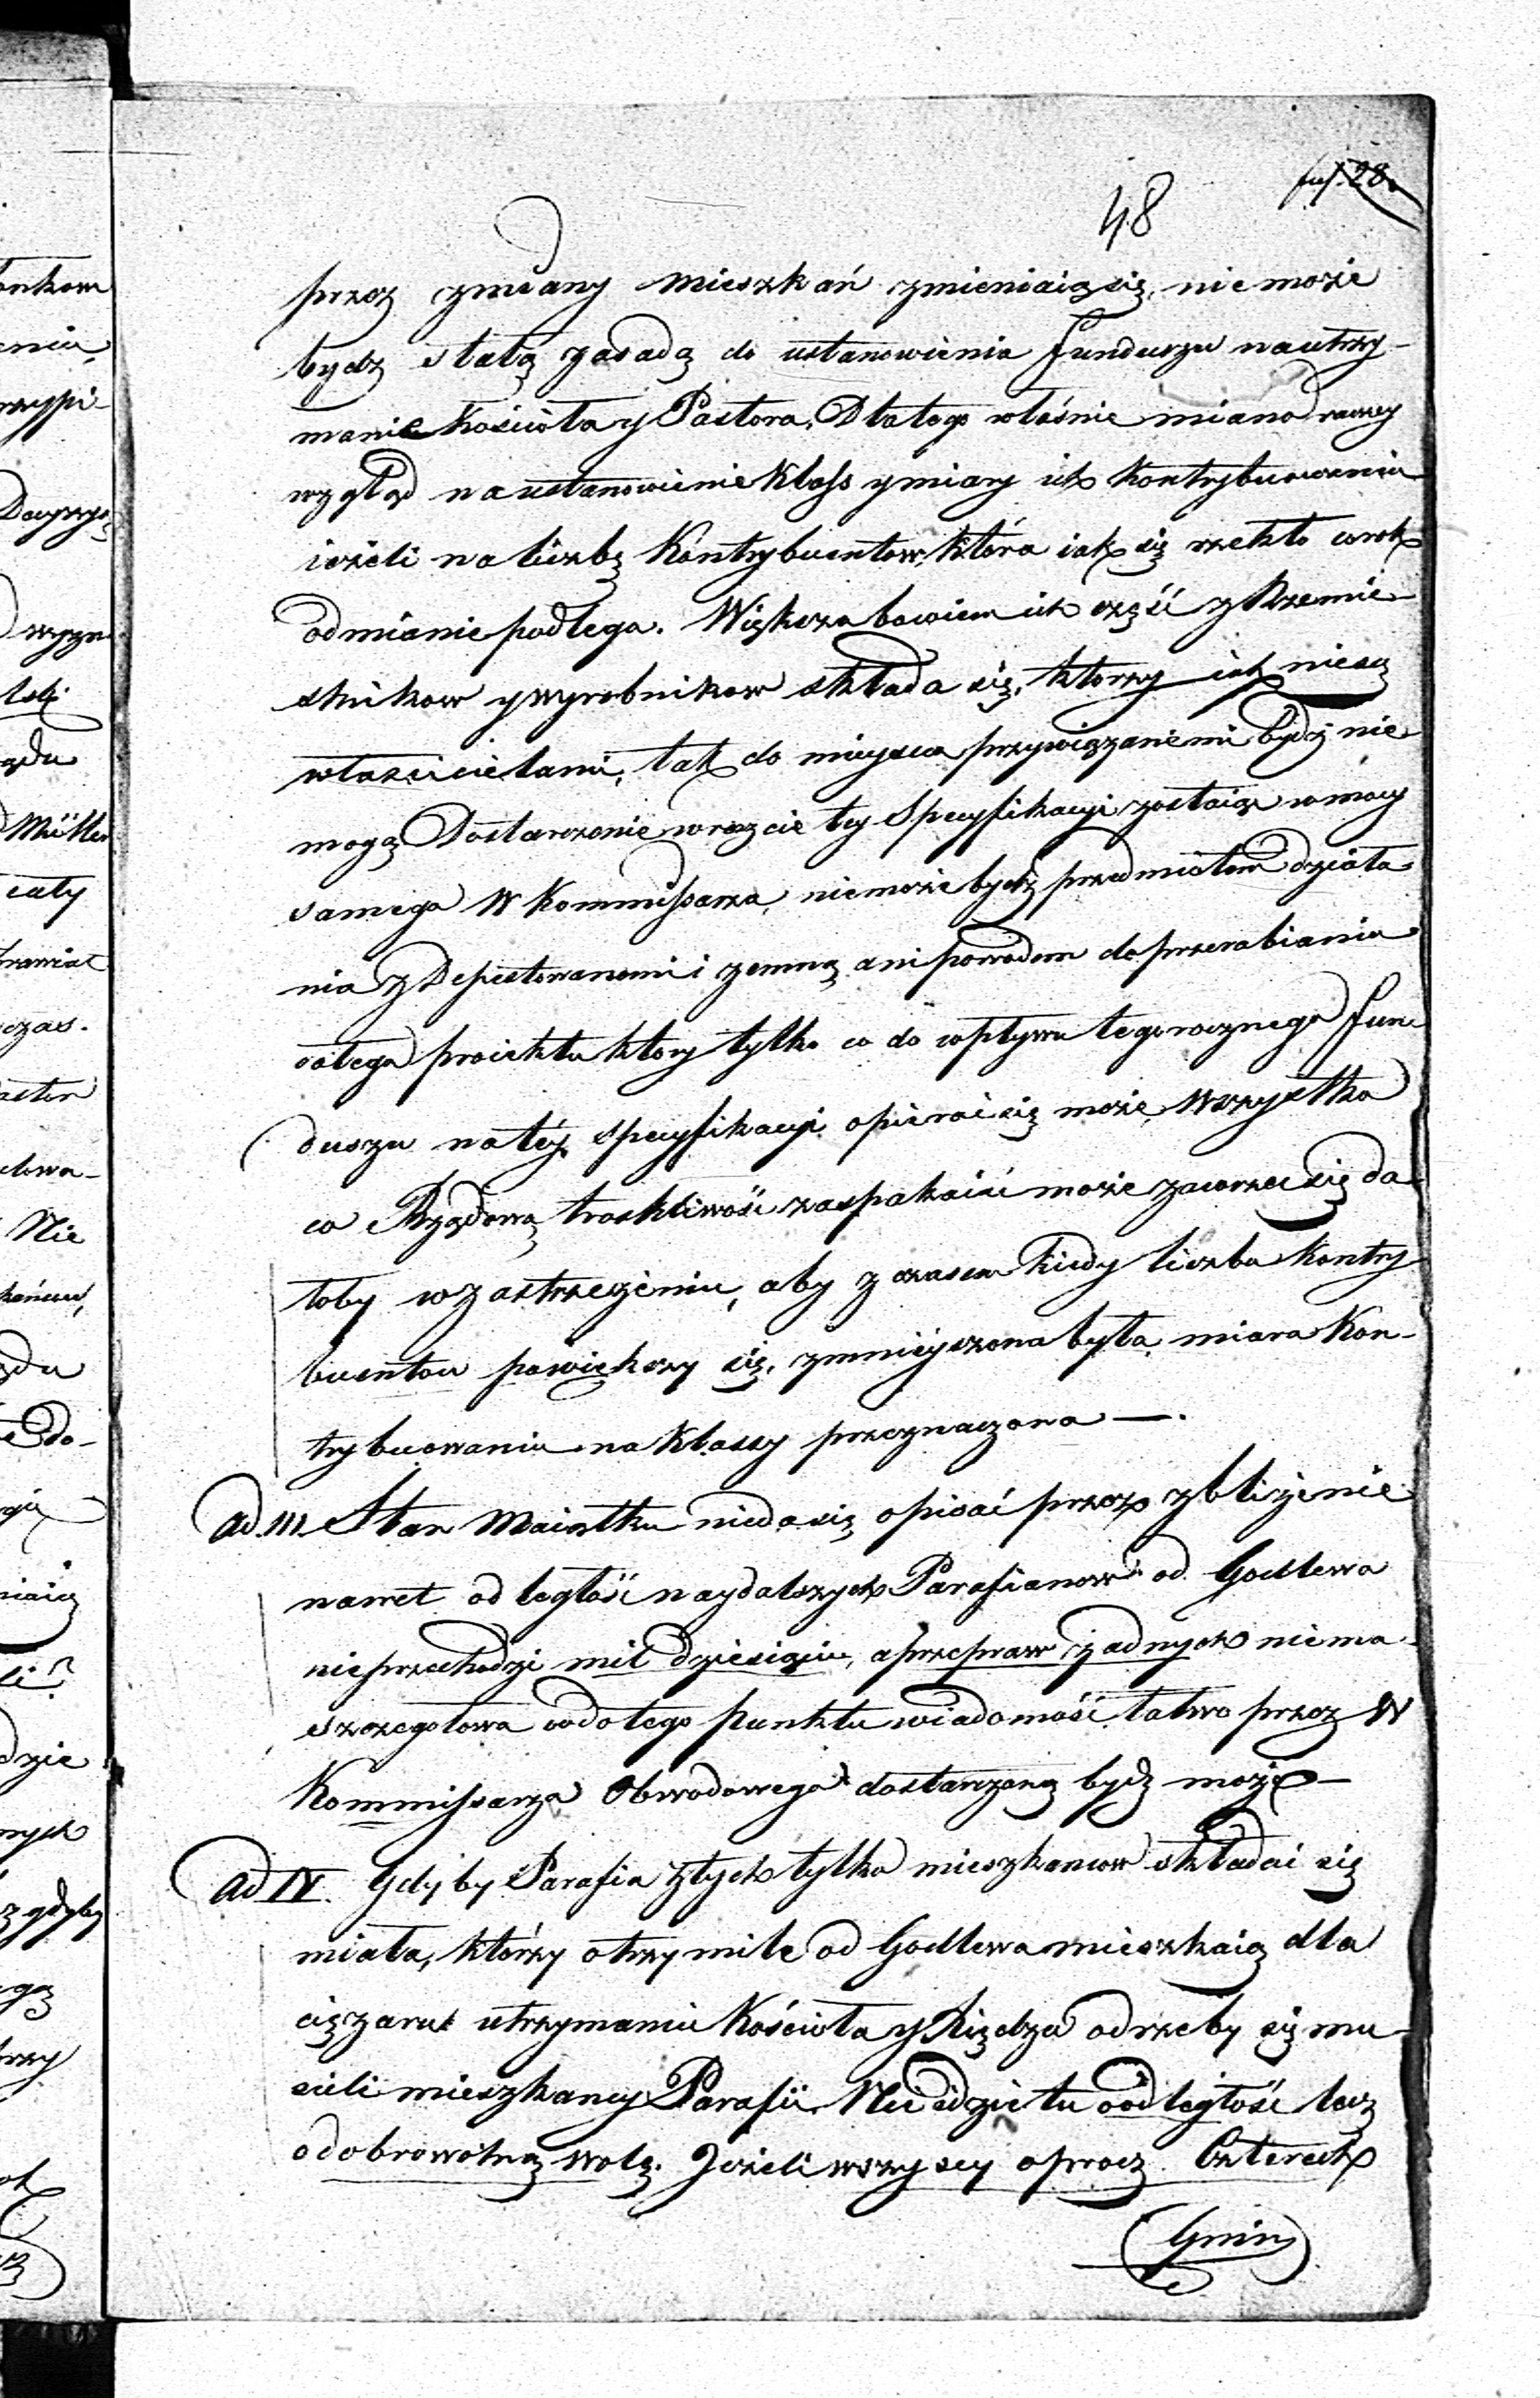 48
przez zmiany mieszkań zmieniaią się, nie może
bydz stałą zasadą do ustanowienia funduszu na utrzy-
manie Kościoła y Pastora, Dla tego właśnie miano raczey
wzgląd na ustanowienie Klass y miary ich Kontrybuowania
ieżeli na liczbę Kontrybuentow, która iak się rzekło corok
odmianie podlega. Większa bowiem ich część z Rzemie-
slnikow y wyrobnikow składa się, ktorzy iak nie są
właścicielami, tak do mieysca przywiązanemi bydz nie
mogą Dostarczenie wreszcie tey Specyfikacyi zostaiąc w mocy
samego W Kommissarza, nie może bydz przedmiotem działa
nia z Deputowanemi i zemną ani powodem do przerabiania
całego proiektu ktory tylko co do wpływu tegorocznego fun
duszu na téy specyfikacyi opierać się może, Wszystko
co Rządową troskliwość zaspakaiać może zawrzeć się da
łoby w zastrzeżeniu, aby z czasem kiedy liczba kontry
buentow powiększy się, zmnieyszona była miara Kon-
trybuowania na Klassy przeznaczona —.
ad III. Stan Maiątku nieda się opisać przez zbliżenie
nawet odległość naydalszych Parafianow od Godlewa
nie przechodzi mil dziesięciu, a przepraw żadnych niema
szczegołowa co do tego punktu wiadomość łatwo przez W
Kommissarza Obwodowego dostarczoną bydz może —
ad IV. Gdyby Parafia z tych tylko mieszkancow składać się
miała, którzy o trzy mile od Godlewa mieszkaią dla
ciężaru utrzymania Kościoła y Księdza odrzecby się mu-
sieli mieszkancy Parafii. Nie idzie tu o odległość lecz
o dobrowolną wolę. Jeżeli wszyscy oprocz Czterech
Gmin